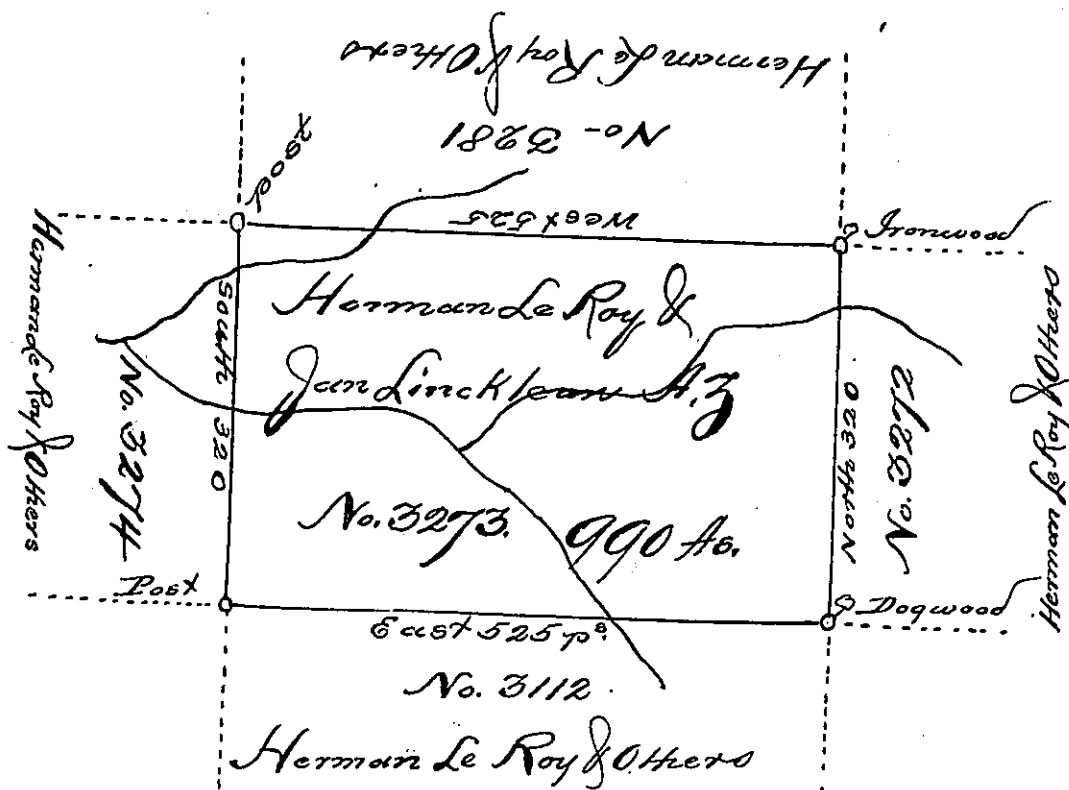 Herman Le Roy & Others
No. 3281
Post
West 525
Ironwood
Herman Le Roy & Others
No. 3274
South 320
Herman Le Roy &
Jan Lincklean A.Z
No. 3273. 990 As.
North 320
No. 3272
Herman Le Roy & Others
Post
Dogwood
East 525 ps.
No. 3112
Herman Le Roy & Others